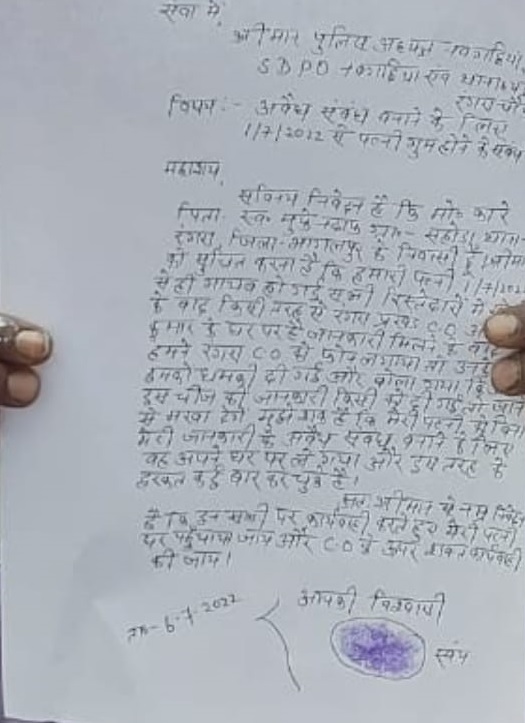 सेवा में,
श्रीमान पुलिस अधीक्षक नवगछिया
SDPO नवगछिया एवं थानाध्यक्ष
रंगरा चौ
विषय :- अवैध संबंध बनाने के लिए
1/7/2022 से पत्नी गुम होने के संबंध
महाशय,
सविनय निवेदन है कि मो० कारे
पिता- स्व० ग्राम- सहोड़ा थाना-
रंगरा, जिला- भागलपुर के निवासी हूँ। श्रीमान
को सूचित करना है कि हमारी पत्नी 1/7/2022
से ही गायब हो गई सभी रिस्तेदारों में
के बाद किसी तरह से रंगरा प्रखंड CO
कुमार के घर पर है जानकारी मिलने के बाद
हमने रंगरा CO को फोन लगाया तो उनके
हमको धमकी दी गई और बोला गया कि
इस चीज की जानकारी किसी को दी गई तो जान
से मरवा देंगे मुझे शक है कि मेरी पत्नी को बिना
मेरी जानकारी के अवैध संबंध बनाने के लिए
वह अपने घर पर ले गया और इस तरह के
हरकत कई बार कर चुके है।
अतः श्रीमान से नम्र निवेदन
है कि इन सभी पर कार्यवाही करते हुए मेरी पत्नी
घर पहुंचाया जाय और CO के ऊपर सख्त कार्यवाही
की जाय।
आपकी विश्वासी
6-7-2022